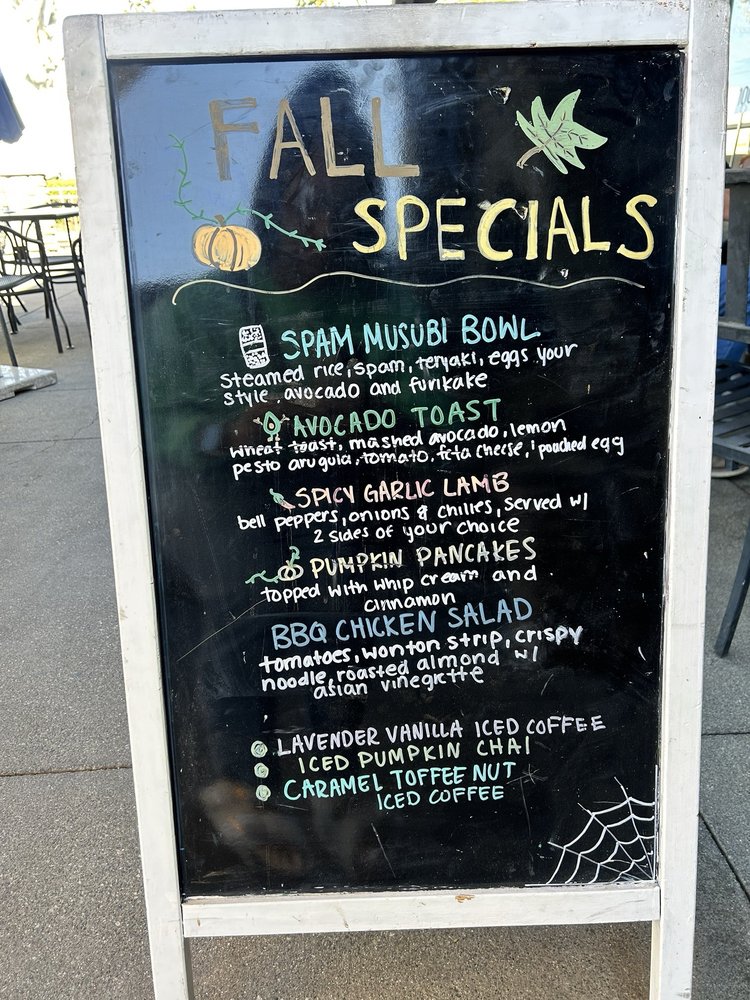 FALL
SPECIALS
SPAM MUSUBI BOWL
Steamed rice, spam, teryaki, eggs your
style, avocado and furikake
AVOCADO TOAST
wheat toast, mashed avocado, lemon
pesto aruguia, tomato, feta cheese, 1 poached egg
SPICY GARLIC LAMB
bell peppers, onions & chilies, served w/
2 sides of your choice
PUMPKIN PANCAKES
topped with whip cream and
cinnamon
BBQ CHICKEN SALAD
tomatoes, wonton strip, crispy
noodle, roasted almond w/
asian vinegrette
LAVENDER VANILLA ICED COFFEE
ICED PUMPKIN CHAI
CARAMEL TOFFEE NUT
ICED COFFEE